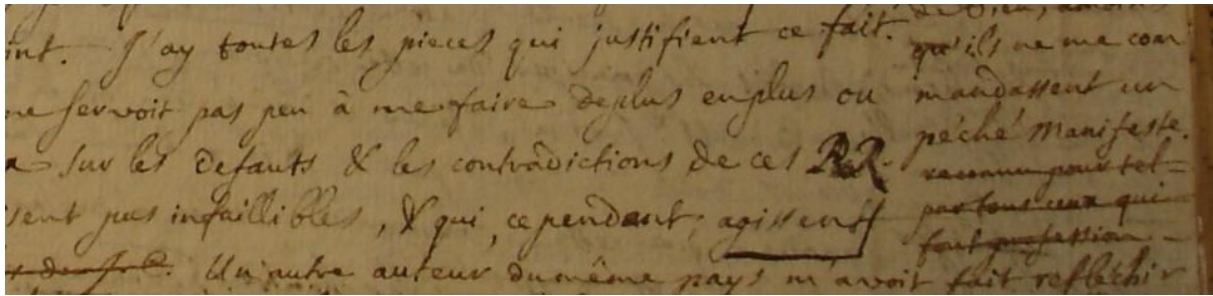 int. J'ay toutes les pieces qui justifient ce fait.
ne servoit pas peu à me faire deplus enplus ou
sur les defauts & les contradictions de ces RR.
sent pas infaillibles, & qui, cependent, agissent
Un autre auteur du même pays m'avoit fait reflêchir
de Dieu, amoins
qu'ils ne me com
mandassent un
péché Manifeste.
reconnu pour tel
par tous ceux qui
font profession